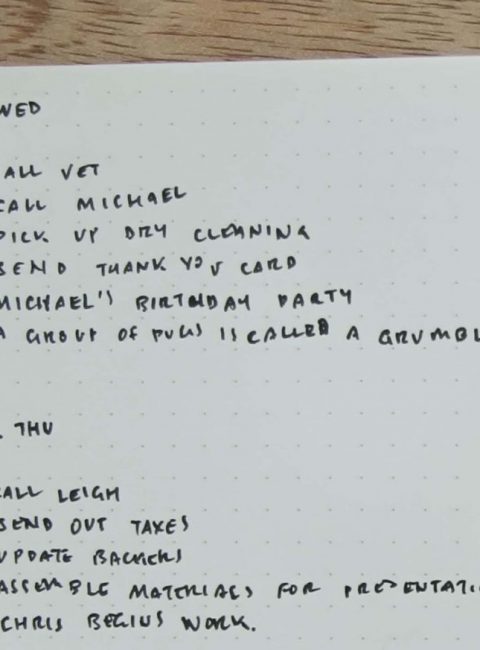 WED
CALL VET
CALL MICHAEL
PICK UP DRY CLEANING
SEND THANK YOU CARD
MICHAEL'S BIRTHDAY PARTY
A GROUP OF PUGS IS CALLED A GRUMBL
. THU
CALL LEIGH
SEND OUT TAXES
UPDATE BACKERS
ASSEMBLE MATERIALS FOR PRESENTATI
CHRIS BEGINS WORK.